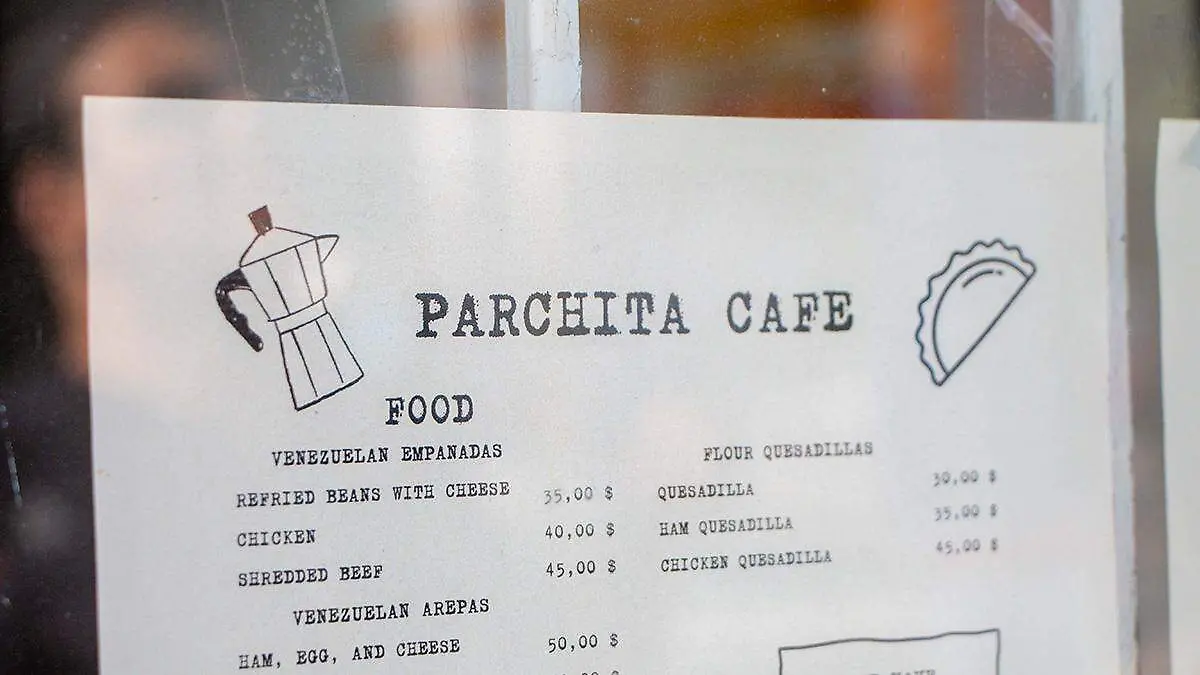 PARCHITA CAFE
FOOD
VENEZUELAN EMPANADAS
REFRIED BEANS WITH CHEESE 35,00 $
CHICKEN 40,00 $
SHREDDED BEEF 45,00 $
VENEZUELAN AREPAS
HAM, EGG, AND CHEESE 50,00 $
FLOUR QUESADILLAS
QUESADILLA 30,00 $
HAM QUESADILLA 35,00 $
CHICKEN QUESADILLA 45,00 $